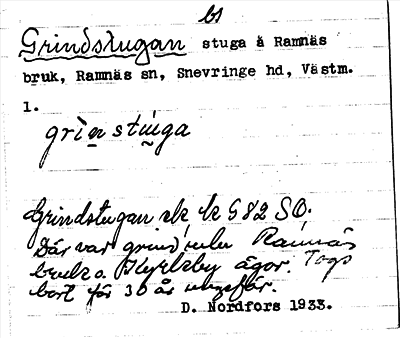 bs
Grindstugan stuga å Ramnäs
bruk, Ramnäs sn, Snevringe hd, Västm.
1.
grìnstuga
Grindstugan ek k G 82 SO.
Där var grind mln Ramnäs
bruk o. ägor. Togs
bort för 30 år ungefär.
D. Nordfors 1933.